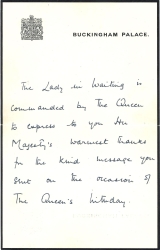 BUCKINGHAM PALACE.
The Lady in Waiting is
commanded by The Queen
to express to you Her
Majesty's warmest thanks
for the kind message you
sent on the occasion of
The Queen's birthday.